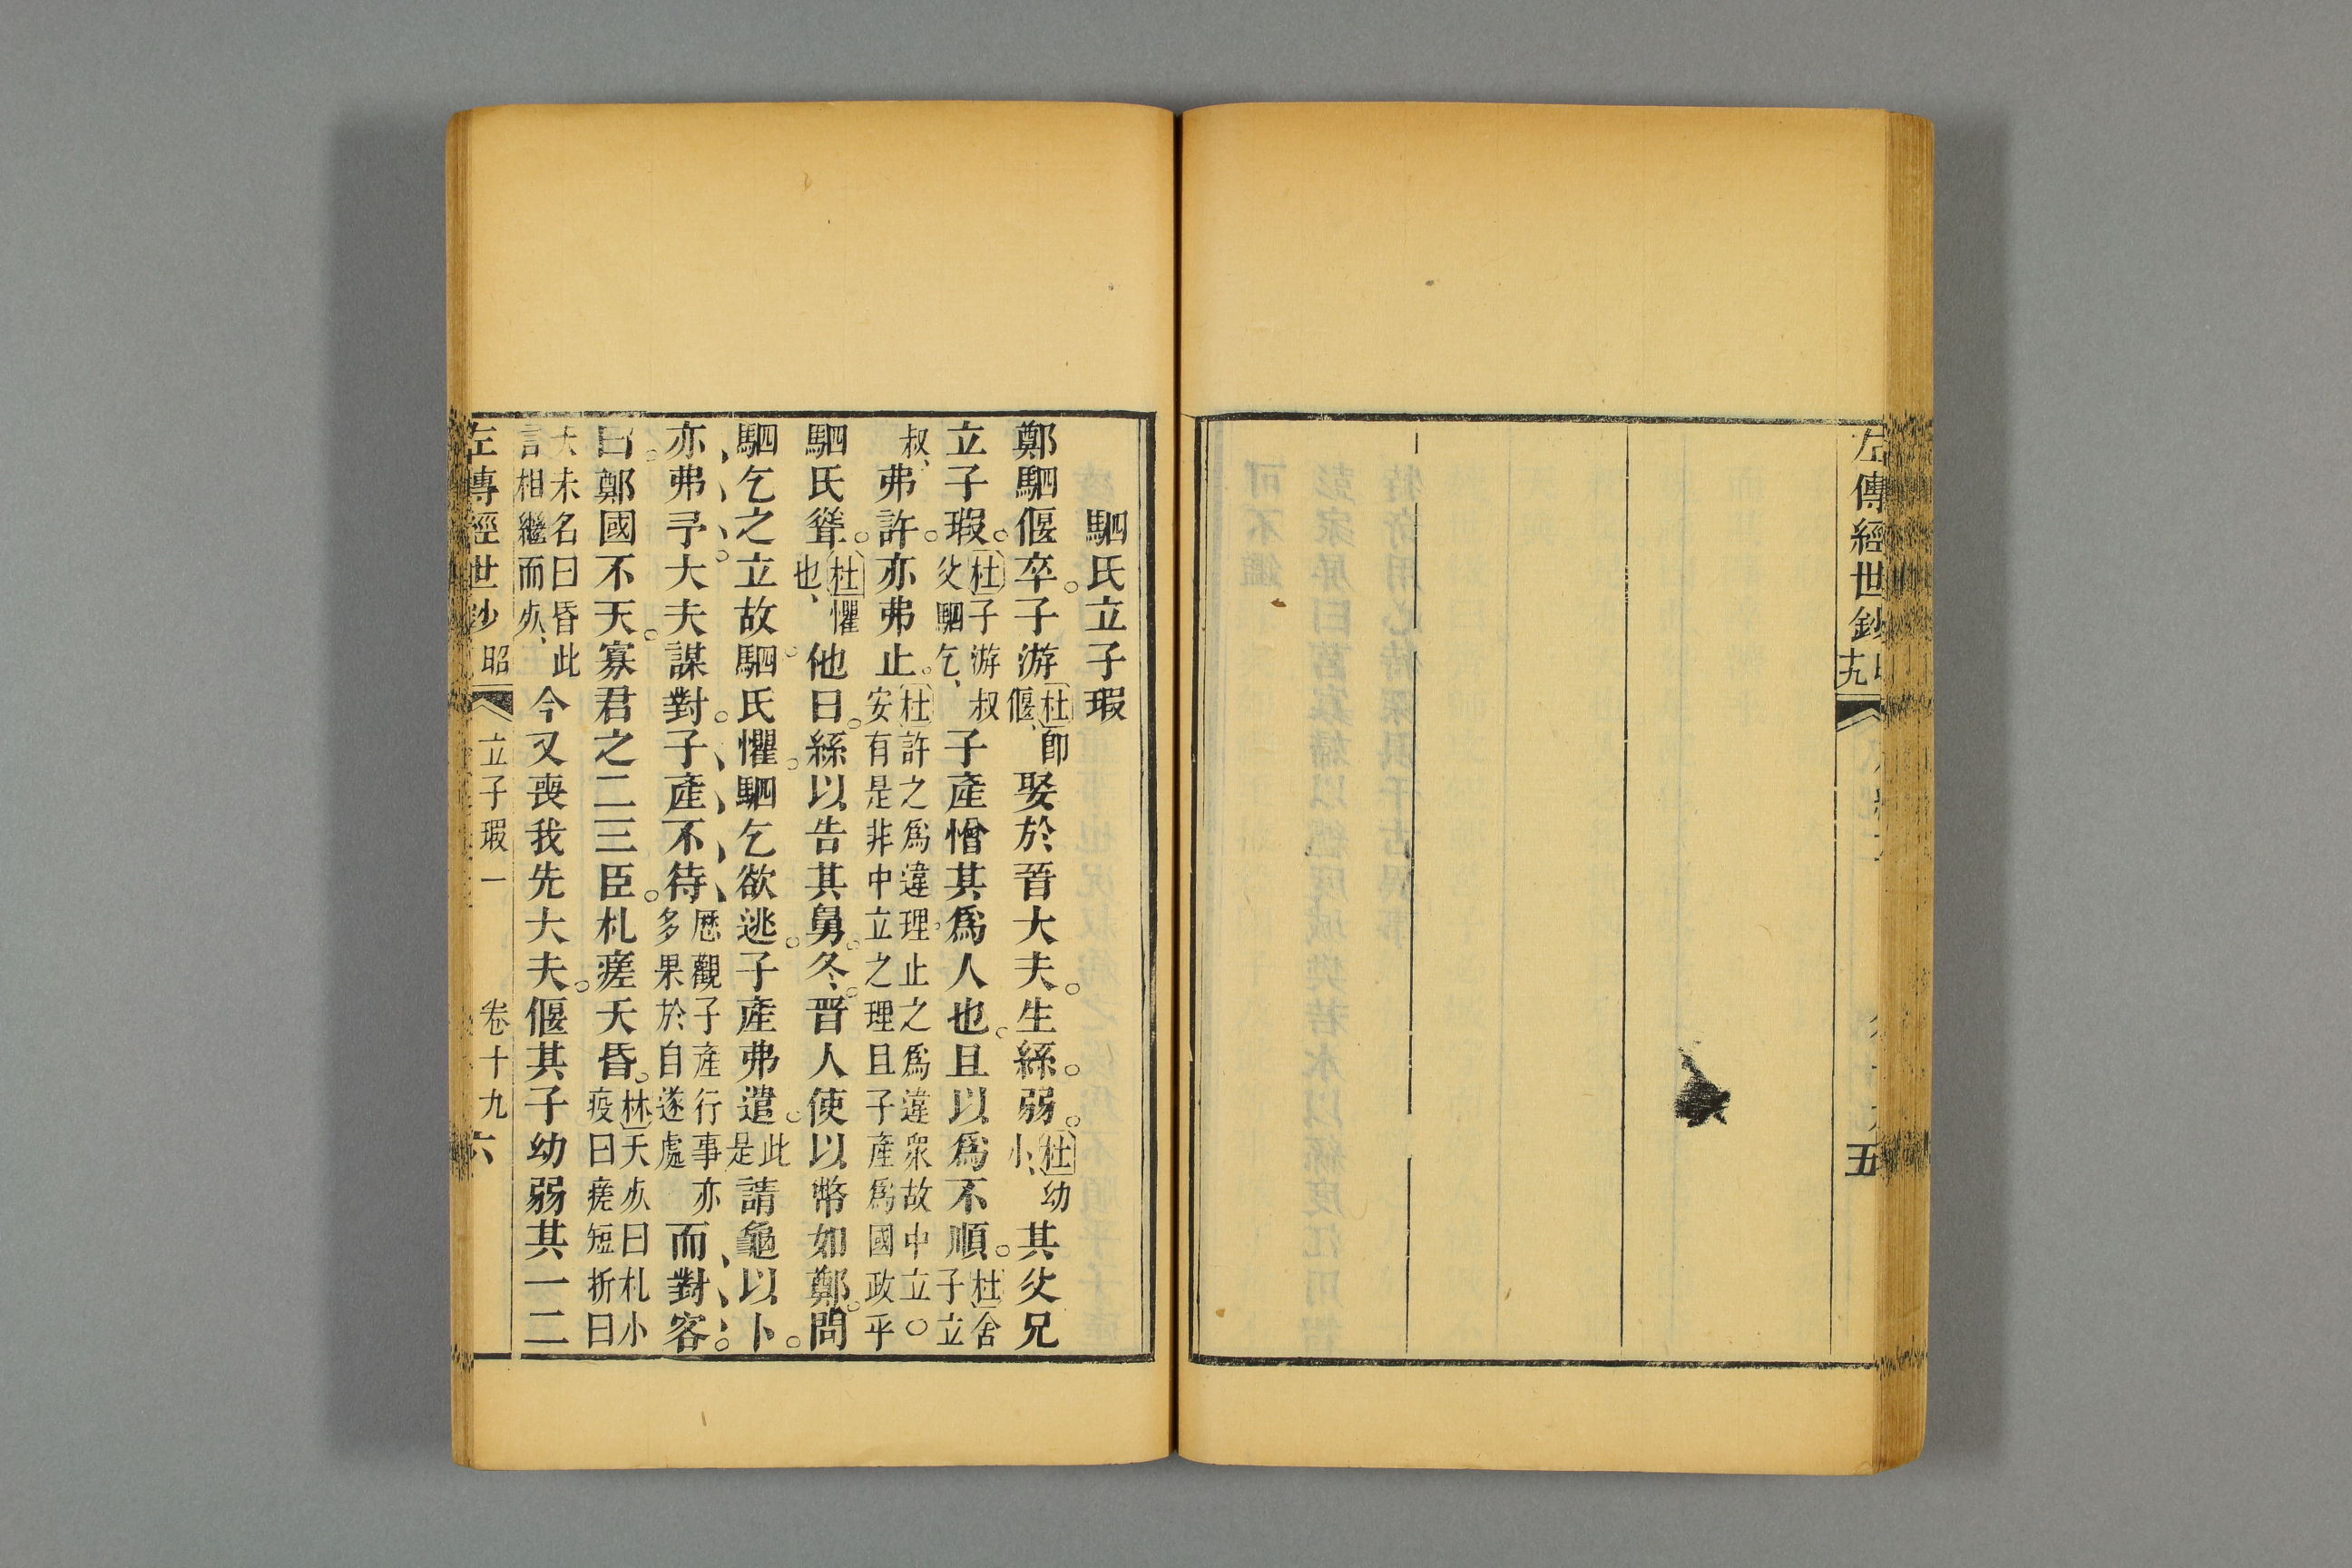 左傳經世鈔
五
駟氏立子瑕
鄭駟偃卒子游杜卽偃娶於晉大夫生絲弱杜幼小其父兄
立子瑕杜子游叔父駟乞子產憎其爲人也且以爲不順杜舍子立
叔弗許亦弗止杜許之爲違理止之爲違眾故中立○安有是非中立之理且子產爲國政乎
駟氏聳杜懼也他日絲以告其舅冬晉人使以幣如鄭問
駟乞之立故駟氏懼駟乞欲逃子產弗遣此是請龜以卜
亦弗予大夫謀對子產不待歷觀子產行事亦多果於自遂處而對客
曰鄭國不天寡君之二三臣札瘥夭昏林大死曰札小疫曰瘥短折曰
夭未名曰昏此言相繼而死今又喪我先大夫偃其子幼弱其一二
左傳經世鈔 昭 立子瑕一 卷十九 六